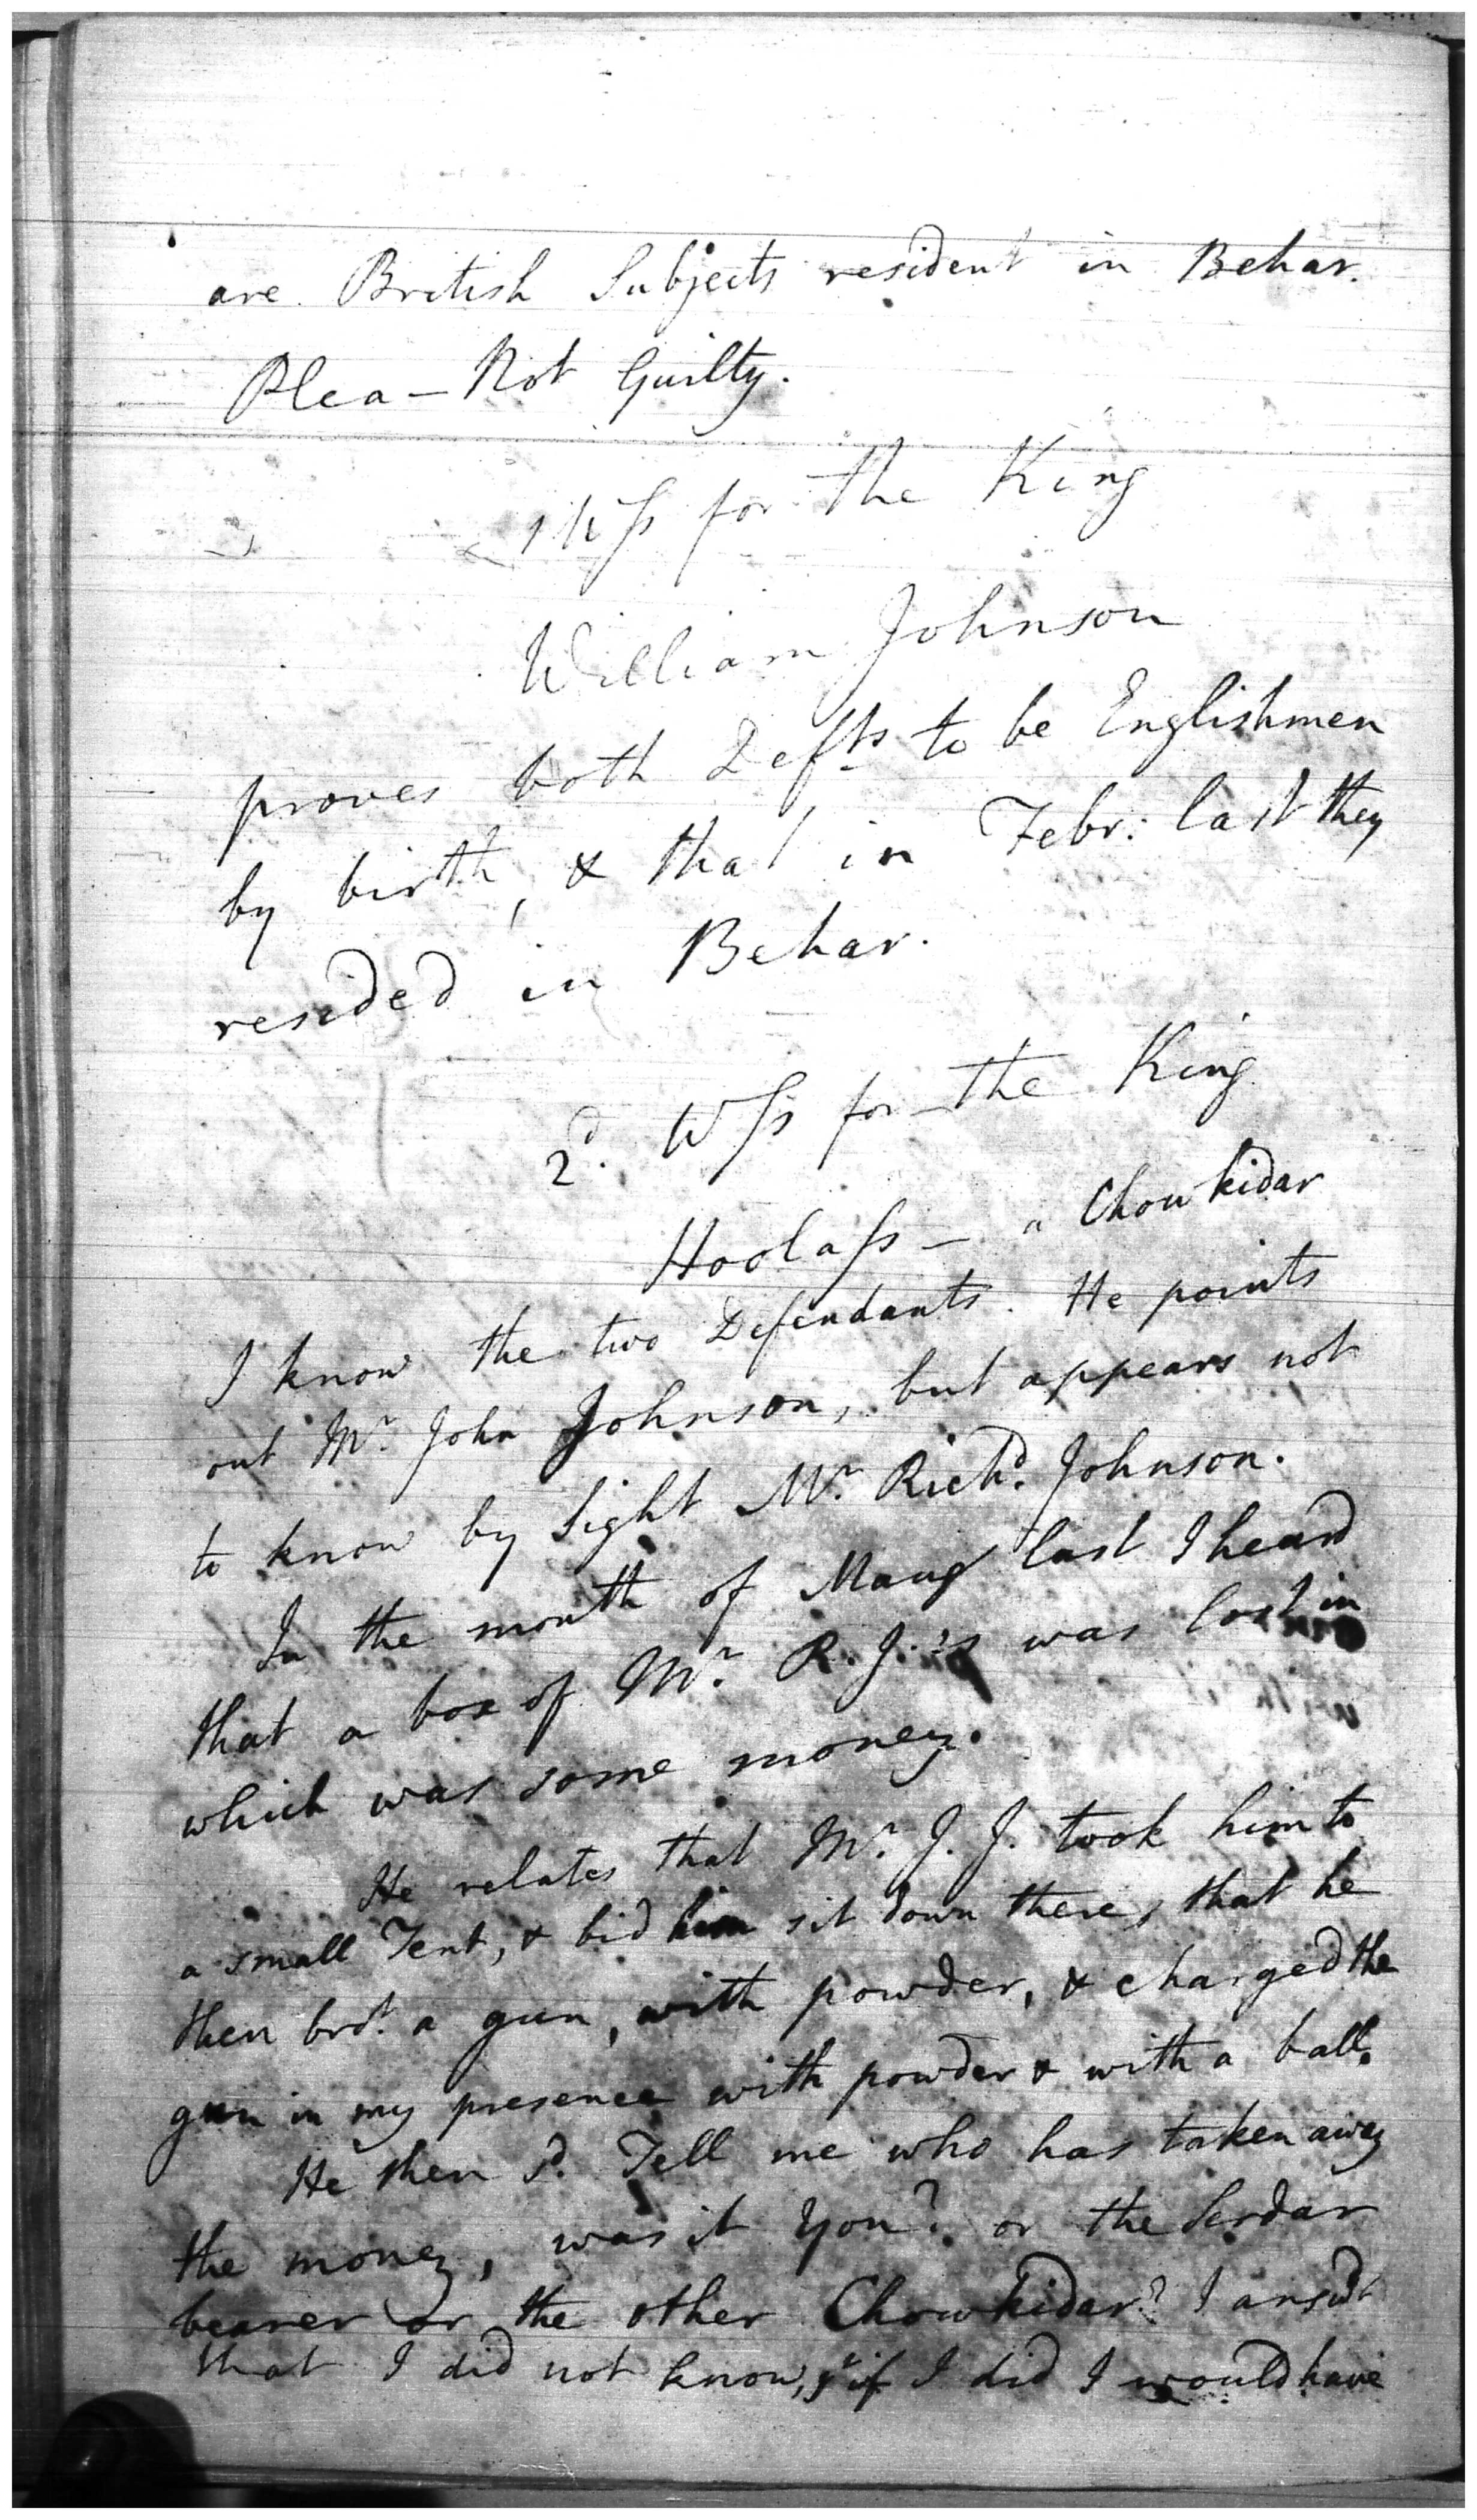 are British Subjects resident in Behar.
Plea — Not Guilty.
1 Wſs for the King
William Johnson
proves both Defts to be Englishmen
by birth, & that in Febr: last they
resided in Behar.
2d. Wſs for the King
Hoolaſs — a Chowkidar
I know the two Defendants. He points
out Mr. John Johnson, but appears not
to know by Sight Mr. Richd. Johnson.
In the month of Maug last I heard
that a box of Mr. R. J.'s was lost in
which was some money.
He relates that Mr. J. J. took him to
a small Tent, & bid him sit down there, that he
then brot. a gun, with powder, & charged the
gun in my presence with powder & with a ball.
He then sd. Tell me who has taken away
the money, was it You? or the Serdar
bearer or the other Chowkidar? I answd.
that I did not know, if I did I would have